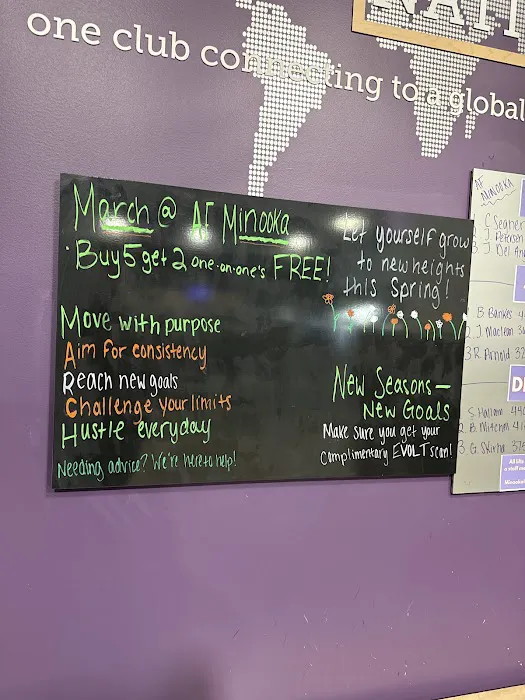 one club connecting to a global
March @ AF Minooka
· Buy 5 get 2 one-on-one's FREE!
Move with purpose
Aim for consistency
Reach new goals
Challenge your limits
Hustle everyday
Needing advice? We're here to help!
Let yourself grow
to new heights
this Spring!
New Seasons—
New Goals
Make sure you get your
Complimentary EVOLT scan!
AF
MINOOKA
J. Petersen
B. Bankes
J Maclean
3 R. Arnold 32
S. Hallam 440
2 B. Mitchell 41
3 G.